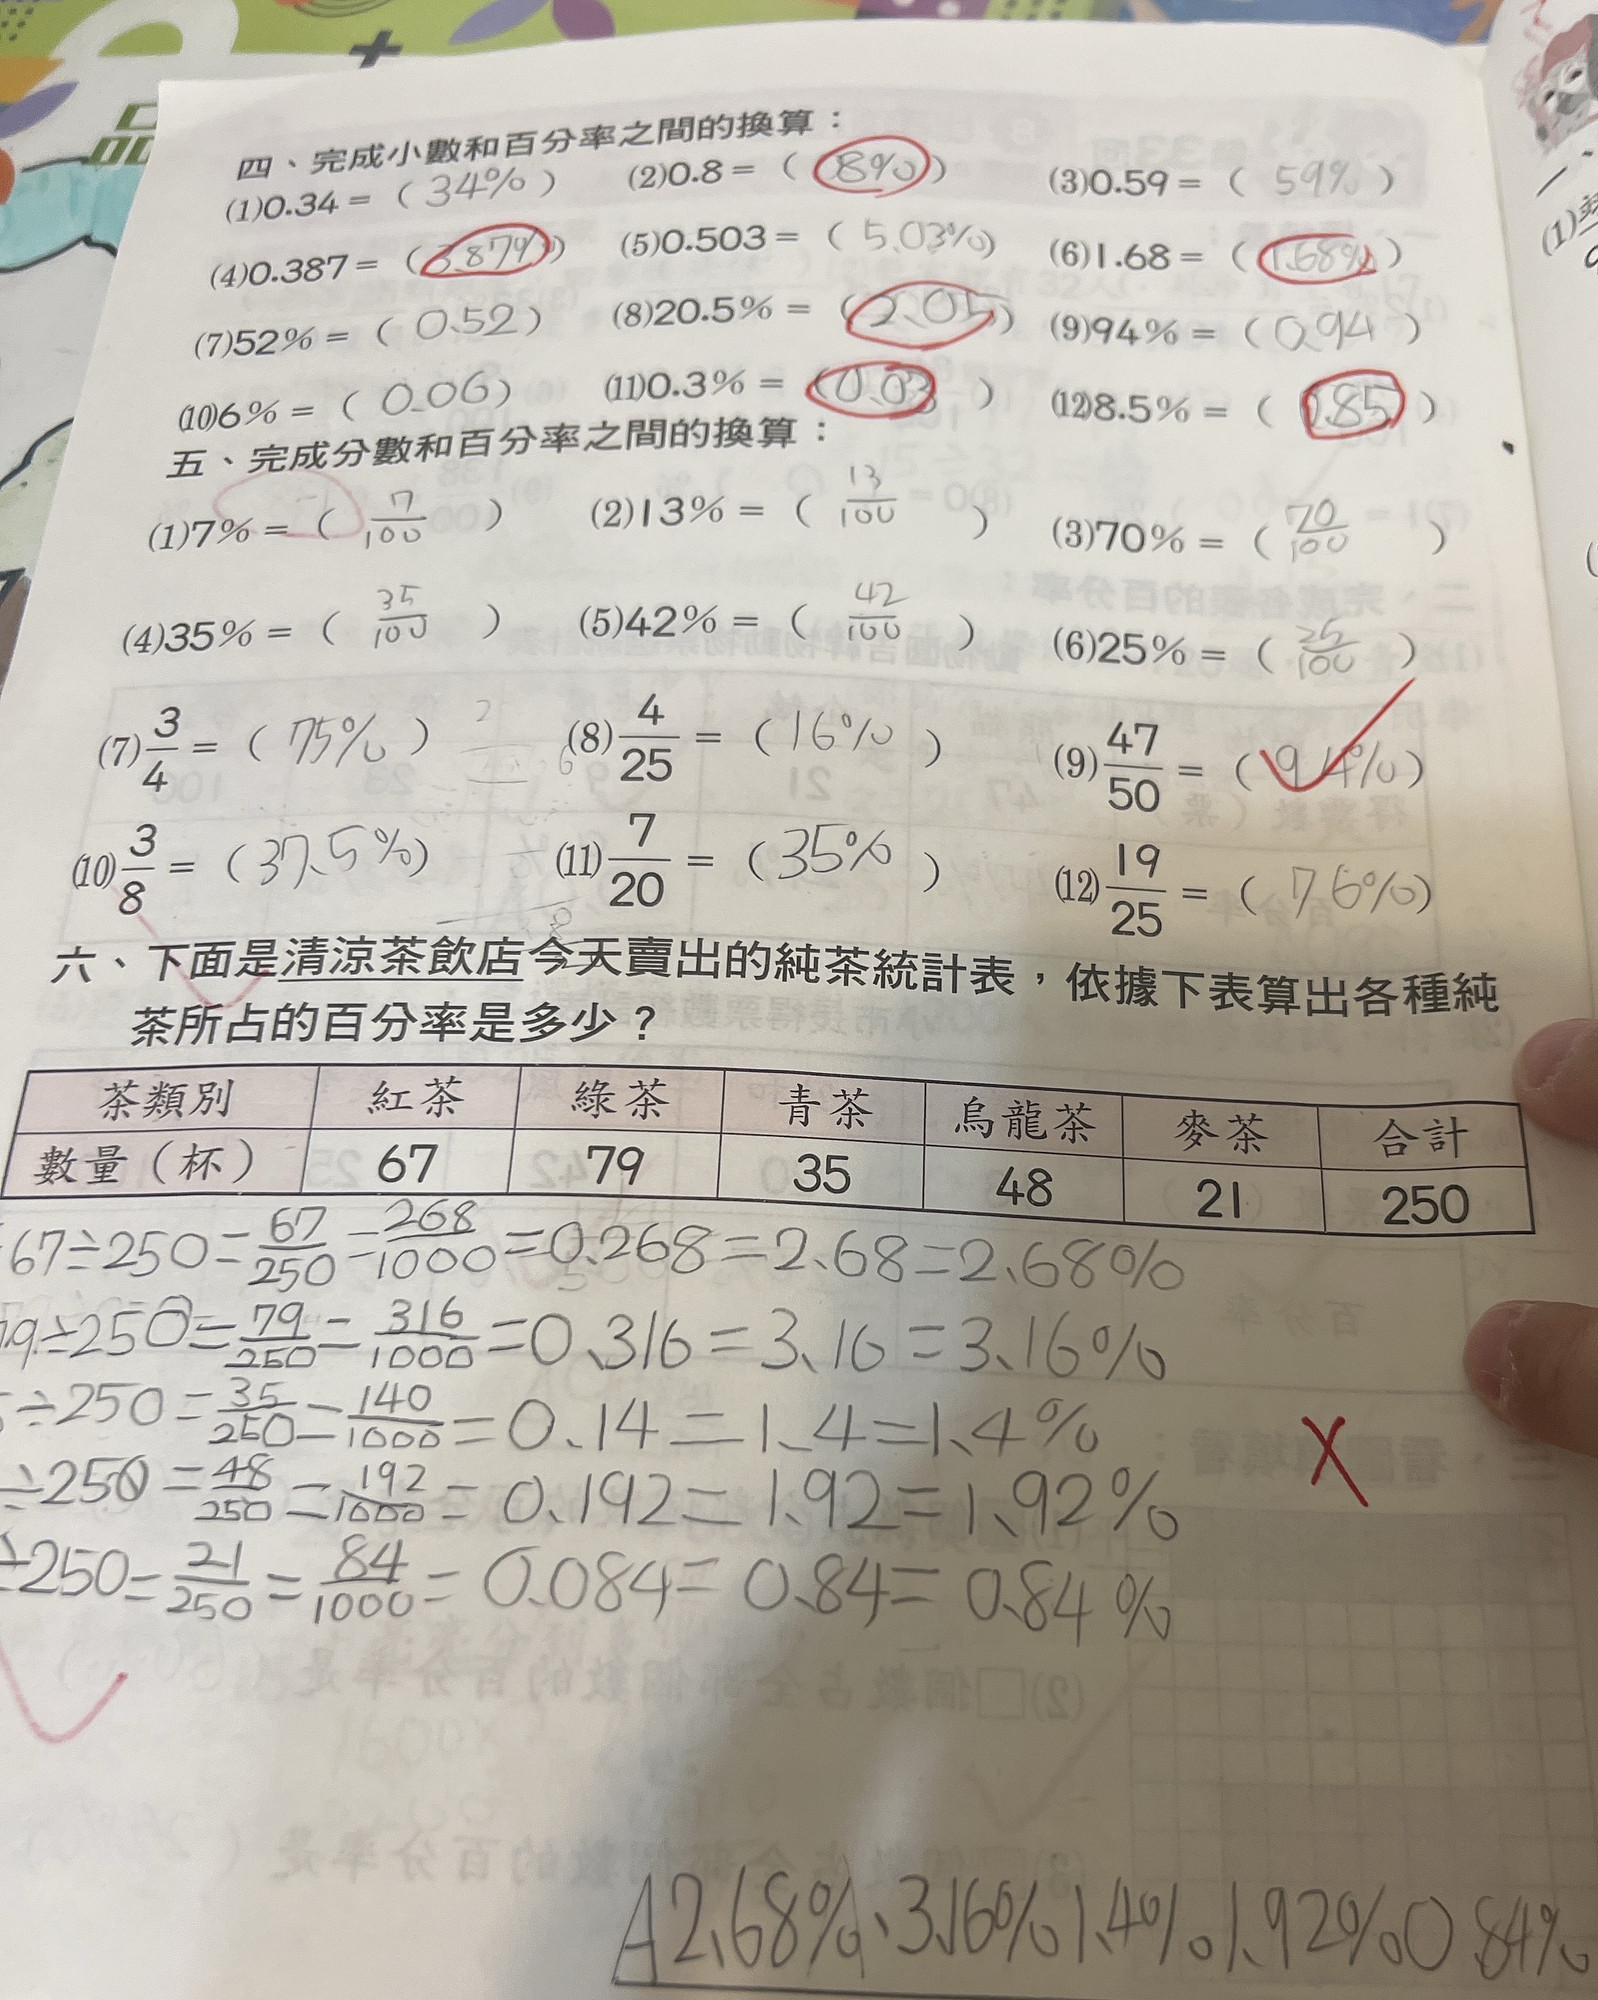 四、完成小數和百分率之間的換算：
(1)0.34＝（34%） (2)0.8＝（8%） (3)0.59＝（59%）
(4)0.387＝（3.87%） (5)0.503＝（5.03%） (6)1.68＝（1.68%）
(7)52%＝（0.52） (8)20.5%＝（2.05） (9)94%＝（0.94）
(10)6%＝（0.06） (11)0.3%＝（0.03） (12)8.5%＝（0.85）
五、完成分數和百分率之間的換算：
(1)7%＝（7/100） (2)13%＝（13/100） (3)70%＝（70/100）
(4)35%＝（35/100） (5)42%＝（42/100） (6)25%＝（25/100）
(7)3/4＝（75%） (8)4/25＝（16%） (9)47/50＝（94%）
(10)3/8＝（37.5%） (11)7/20＝（35%） (12)19/25＝（76%）
六、下面是清涼茶飲店今天賣出的純茶統計表，依據下表算出各種純
茶所占的百分率是多少？
茶類別 紅茶 綠茶 青茶 烏龍茶 麥茶 合計
數量（杯） 67 79 35 48 21 250
67÷250=67/250=268/1000=0.268=2.68=2.68%
79÷250=79/250=316/1000=0.316=3.16=3.16%
÷250=35/250=140/1000=0.14=1.4=1.4%
÷250=48/250=192/1000=0.192=1.92=1.92%
÷250=21/250=84/1000=0.084=0.84=0.84%
A2.68%、3.16%、1.4%、1.92%、0.84%